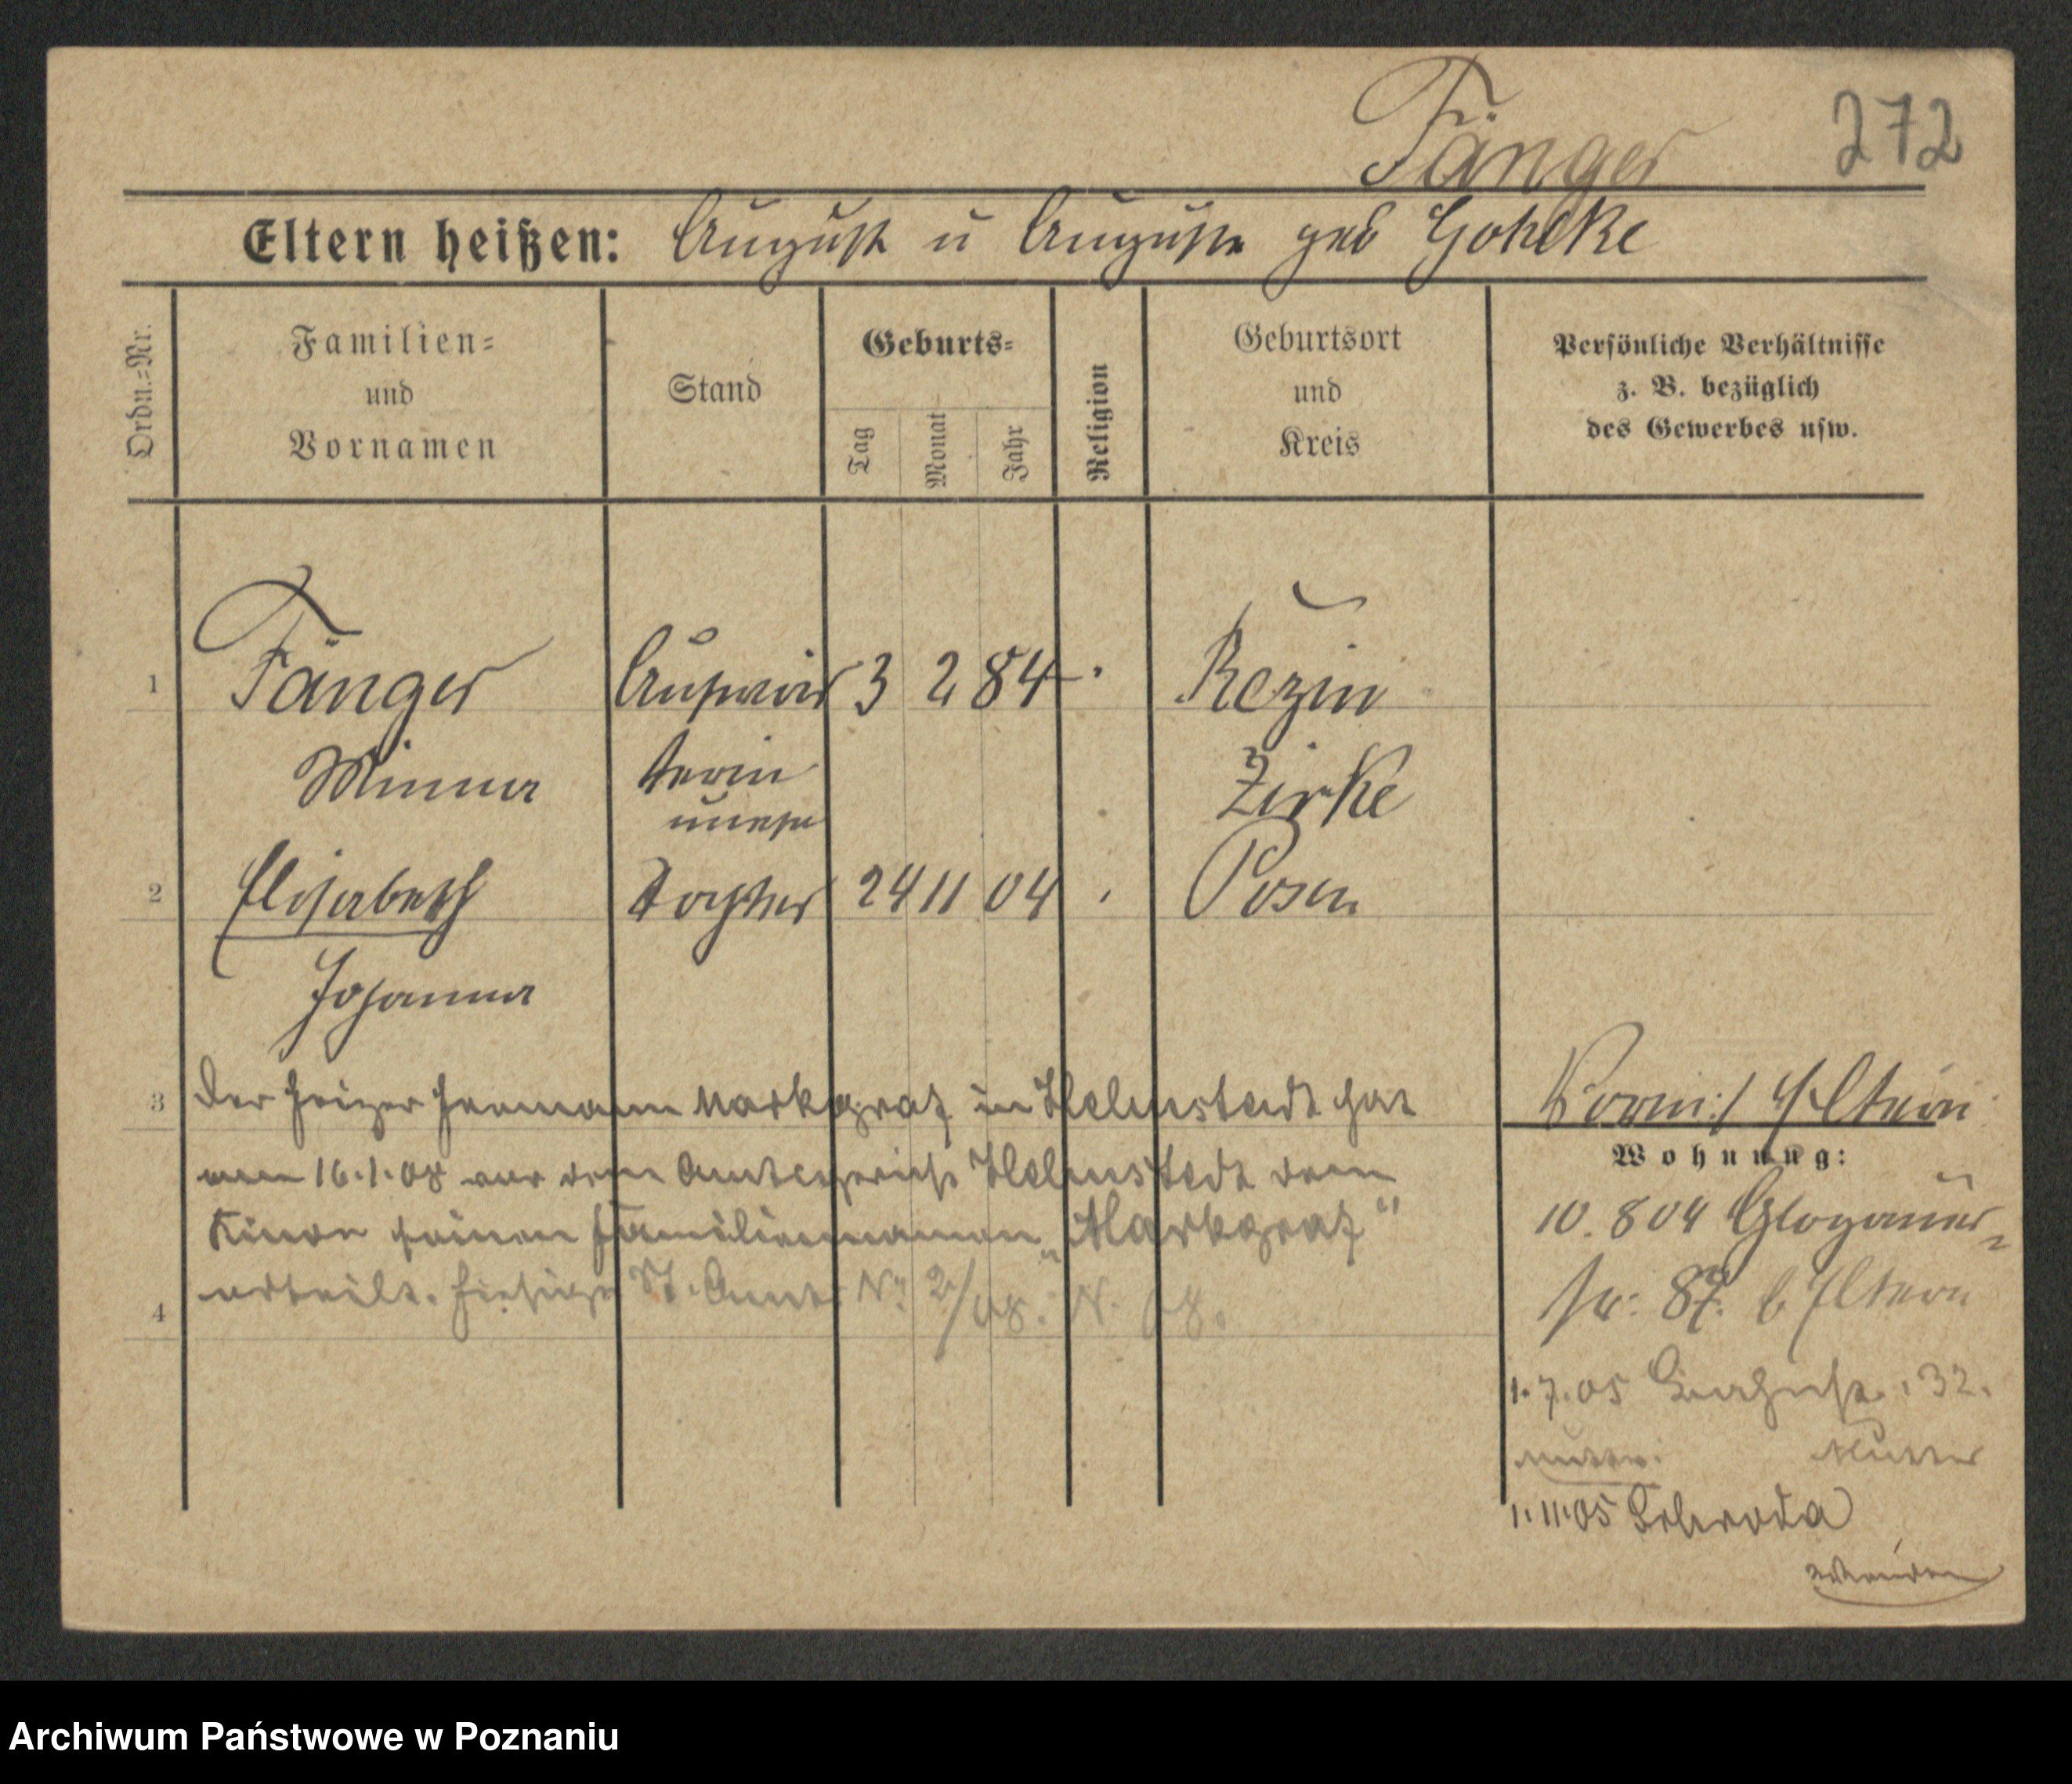 Fänger
272
Eltern heißen: August u Auguste geb Gohlke
Ordn.-Nr.
Familien- und Vornamen
Stand
Geburts-
Tag
Monat
Jahr
Religion
Geburtsort und Kreis
Persönliche Verhältnisse z. B. bezüglich des Gewerbes usw.
1 Fänger Aufwär 3 2 84 Rezin
Minna terin Zirke
unehe
2 Elisabeth Tochter 24 11 04 Posen
Johanna
3 Der Heizer Hermann Markgraf in Helmstedt hat
am 16.1.08 vor dem Amtsgericht Helmstedt dem
Kinde seinen Familiennamen „Markgraf“
4 erteilt. Hiesige St. Amt Nr. 2/08.
Eltern
Wohnung:
10. 804 Glogauer-
str: 87. b Eltern
1.7.05 32.
Mutter
1.11.05 Schroda